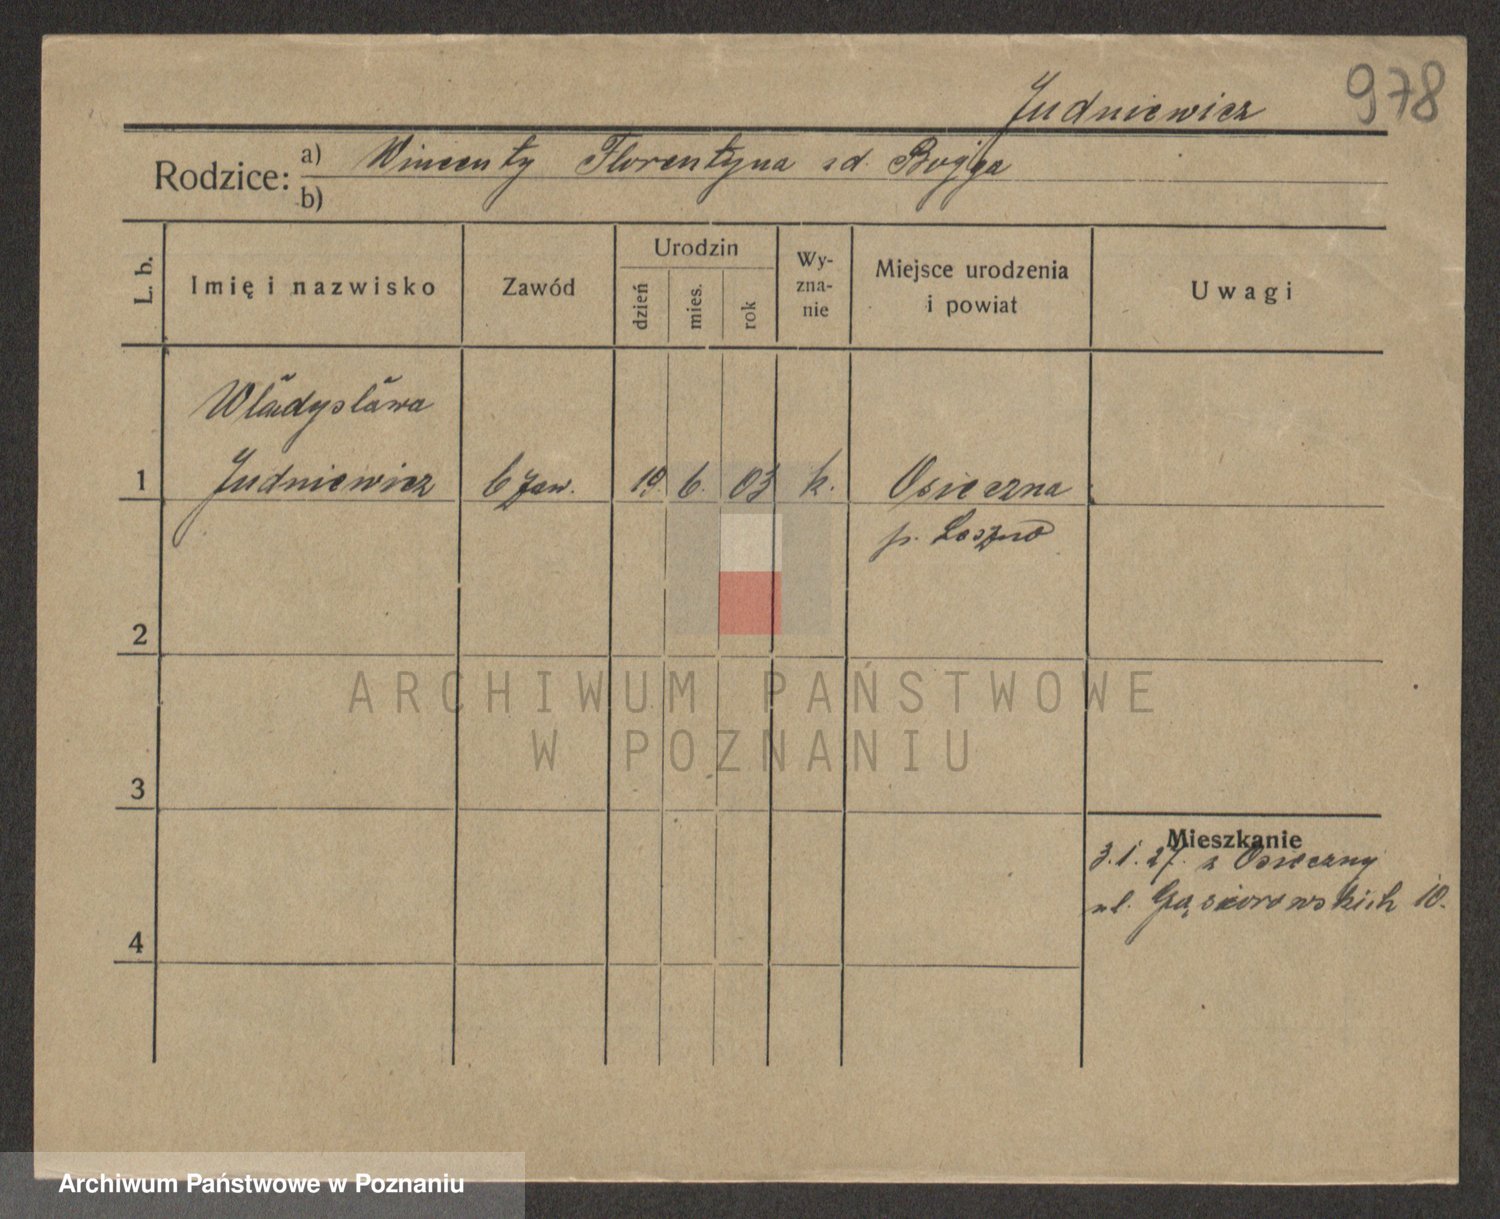 Judniewicz 978
Rodzice: a) Wincenty Florentyna zd. Bojga
b)
L. b.
Imię i nazwisko
Zawód
Urodzin
dzień
mies.
rok
Wy-
zna-
nie
Miejsce urodzenia
i powiat
Uwagi
Władysława
1 Judniewicz b zaw. 19 6. 03 k. Osieczna
p. Leszno
2
ARCHIWUM PAŃSTWOWE
W POZNANIU
3
Mieszkanie
3.1.27. z Osieczny
ul. Gąsiorowskich 10.
4
Archiwum Państwowe w Poznaniu